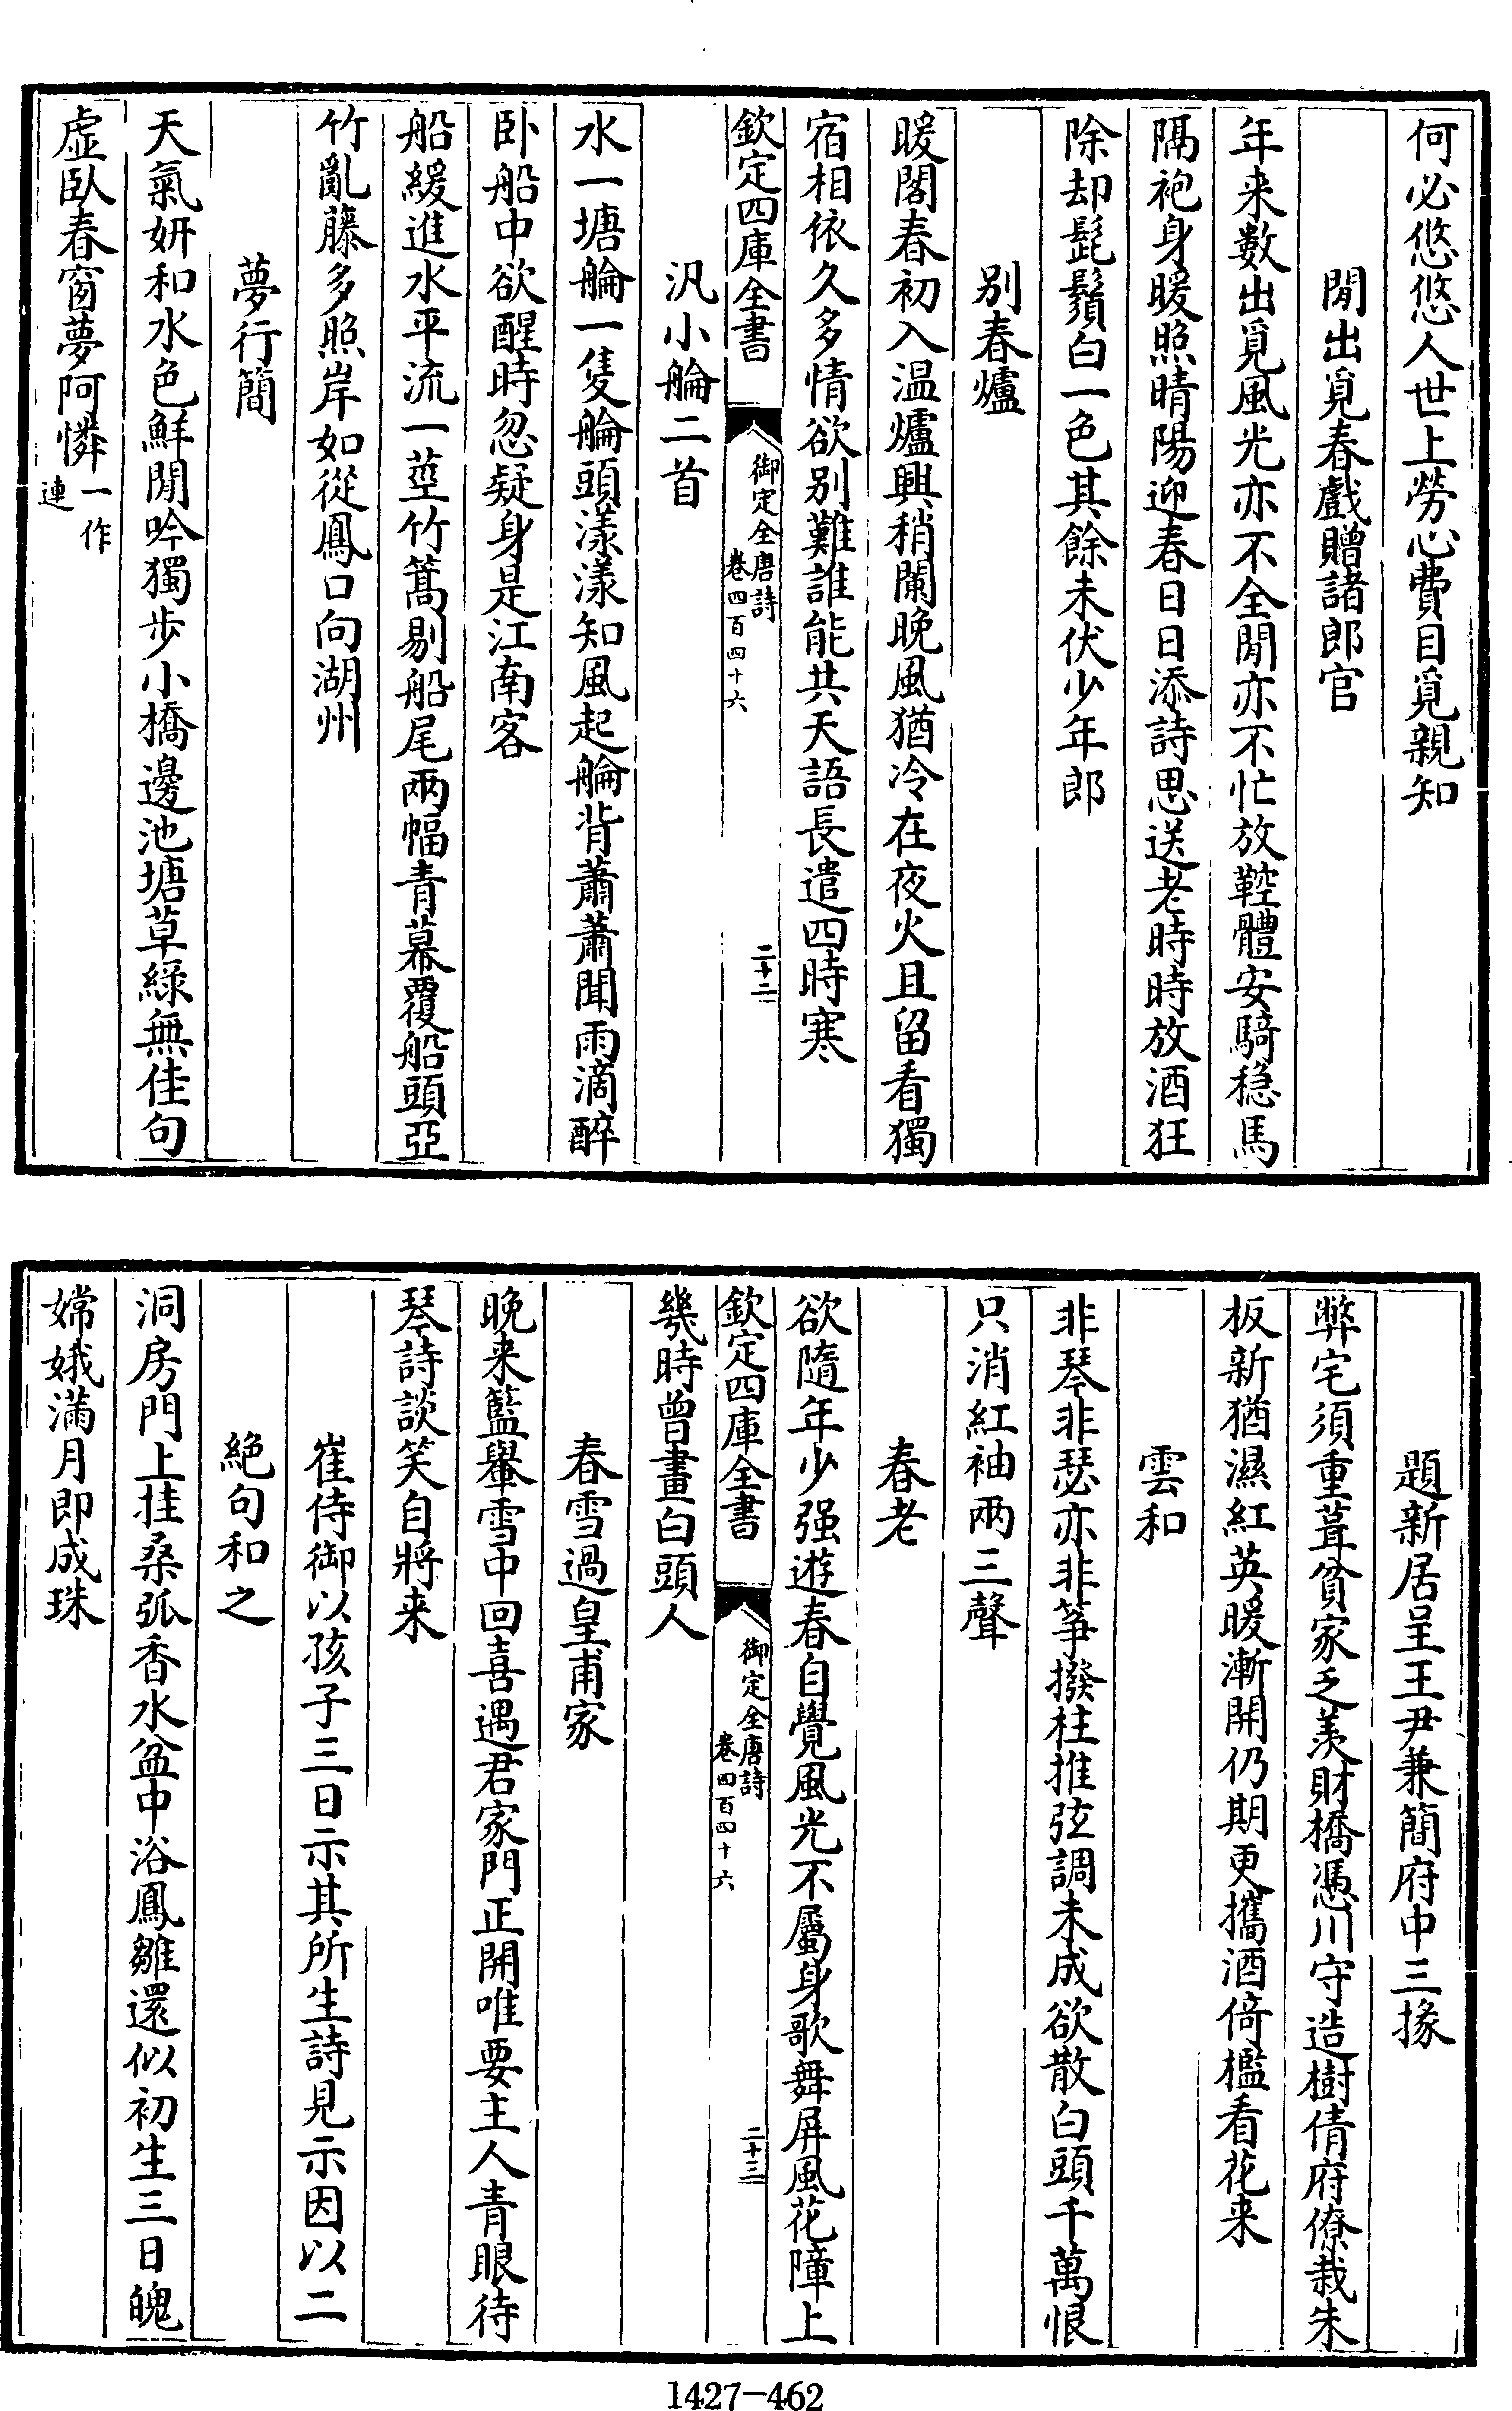 何必悠悠人世上勞心費目覓親知
閒出覓春戲贈諸郎官
年来數出覓風光亦不全閒亦不忙放鞚體安騎穩馬
隔袍身暖照晴陽迎春日日添詩思送老時時放酒狂
除却髭鬚白一色其餘未伏少年郎
別春爐
暖閣春初入温爐興稍闌晚風猶冷在夜火且留看獨
宿相依久多情欲别難誰能共天語長遣四時寒
欽定四庫全書
御定全唐詩
卷四百四十六
二十二
汎小䑳二首
水一塘䑳一隻䑳頭漾漾知風起䑳背蕭蕭聞雨滴醉
卧船中欲醒時忽疑身是江南客
船緩進水平流一莖竹篙剔船尾兩幅青幕覆船頭亞
竹亂藤多照岸如從鳳口向湖州
夢行簡
天氣妍和水色鮮閒吟獨步小橋邊池塘草綠無佳句
虚臥春窗夢阿憐一作連
題新居呈王尹兼簡府中三掾
弊宅須重葺貧家乏羡財橋憑川守造樹倩府僚栽朱
板新猶濕紅英暖漸開仍期更攜酒倚檻看花来
雲和
非琴非瑟亦非筝撥柱推弦調未成欲散白頭千萬恨
只消紅袖兩三聲
春老
欲隨年少强遊春自覺風光不屬身歌舞屏風花障上
欽定四庫全書
御定全唐詩
卷四百四十六
二十三
幾時曾畫白頭人
春雪過皇甫家
晚来籃轝雪中回喜遇君家門正開唯要主人青眼待
琴詩談笑自將来
崔侍御以孩子三日示其所生詩見示因以二
絶句和之
洞房門上挂桑弧香水盆中浴鳳雛還似初生三日魄
嫦娥滿月即成珠
1427-462